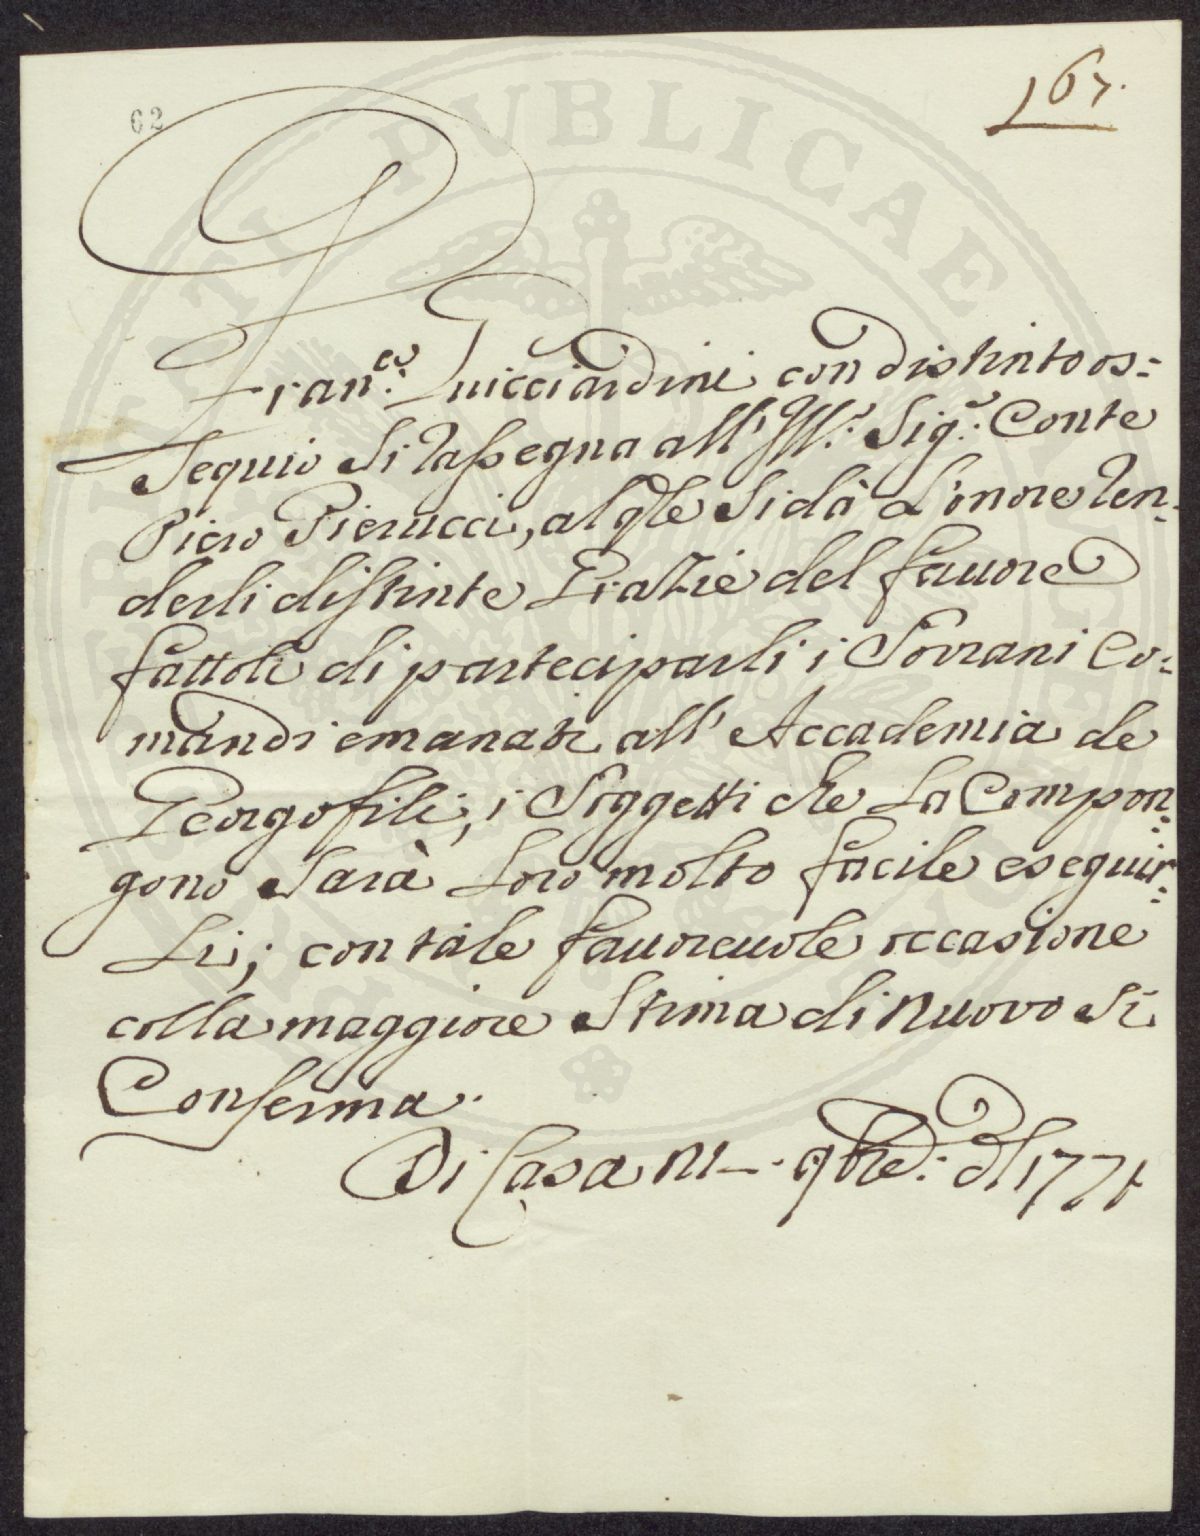 62
167.
PVBLICAE
Fran.co Guicciardini con distinto os=
sequio si rassegna all' Ill.e Sig.e Conte
Piero Pierucci, al qle si dà L'onore Ren=
derli distinte Grazie del fauore
fattoli di parteciparli i Sovrani Co=
mandi emanati all' Accademia de
Georgofili; i Soggetti che La Compon=
gono Sarà Loro molto facile eseguir=
Li; con tale fauoreuole occasione
colla maggiore Stima di nuovo Si
Conferma.
Di Casa 9bre. del 1771